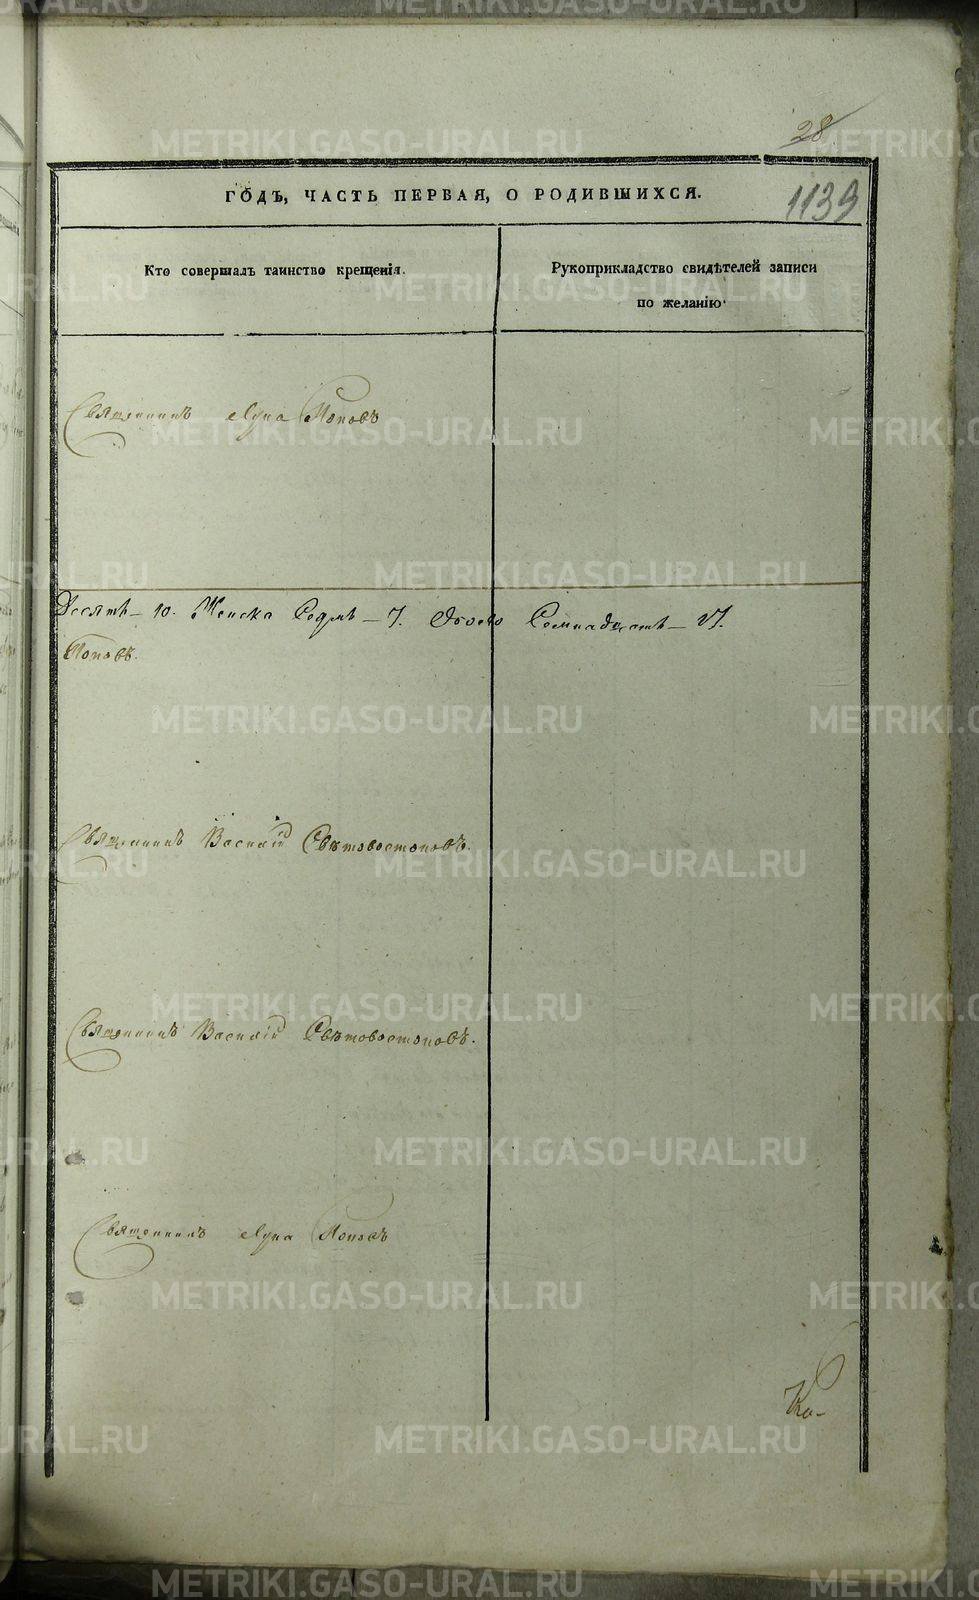 28
ГОДЪ, ЧАСТЬ ПЕРВАЯ, О РОДИВШИХСЯ.
1139
Кто совершалъ таинство крещенія.
Рукоприкладство свидѣтелей записи
по желанію.
Священникъ Лука Поповъ
Десять – 10. Женска Седмь – 7. Обоего Семнадцать – 17.
Поповъ.
Священникъ Василій Свѣтовостоковъ.
Священникъ Василій Свѣтовостоковъ.
Священникъ Лука Поповъ
Ко-
METRIKI.GASO-URAL.RU